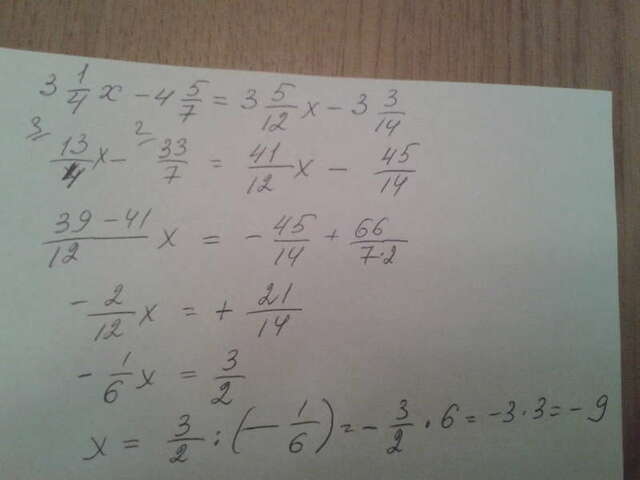 3 1/4 x - 4 5/7 = 3 5/12 x - 3 3/14
3 13/4 x - 2 33/7 = 41/12 x - 45/14
39-41/12 x = - 45/14 + 66/7·2
- 2/12 x = + 21/14
- 1/6 x = 3/2
x = 3/2 : (- 1/6) = - 3/2 · 6 = -3·3 = -9